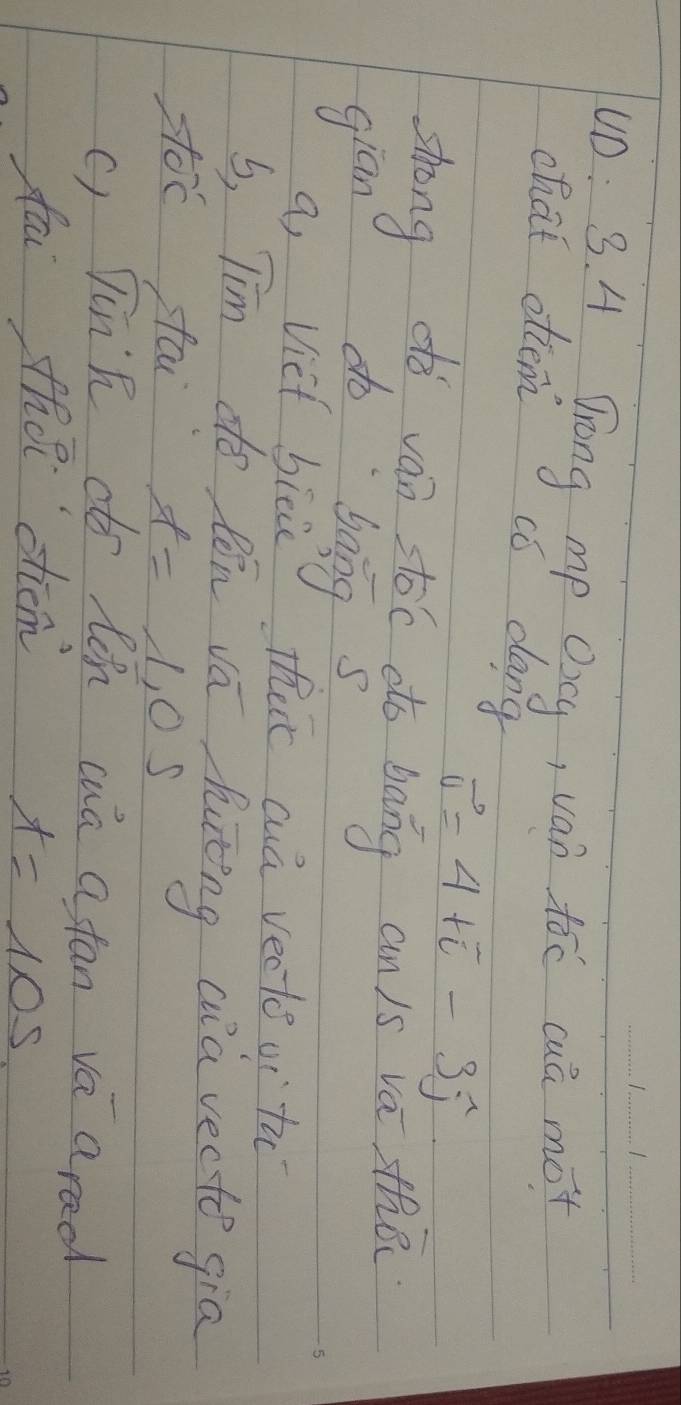 VD: 3.4 Trong mp Oxy, vận tốc của một
chất điểm có dạng
v⃗ = 4ti⃗ - 3j⃗
trong đó vận tốc đo bằng cm/s và thời
gian đo bằng s
a, Viết biểu thức của vectơ vị trí
b, Tìm độ lớn và hướng của vectơ gia
tốc tại t = 1,0s
c, Tính độ lớn của a tan và a rad
tại thời điểm t = 1,0s
5
10